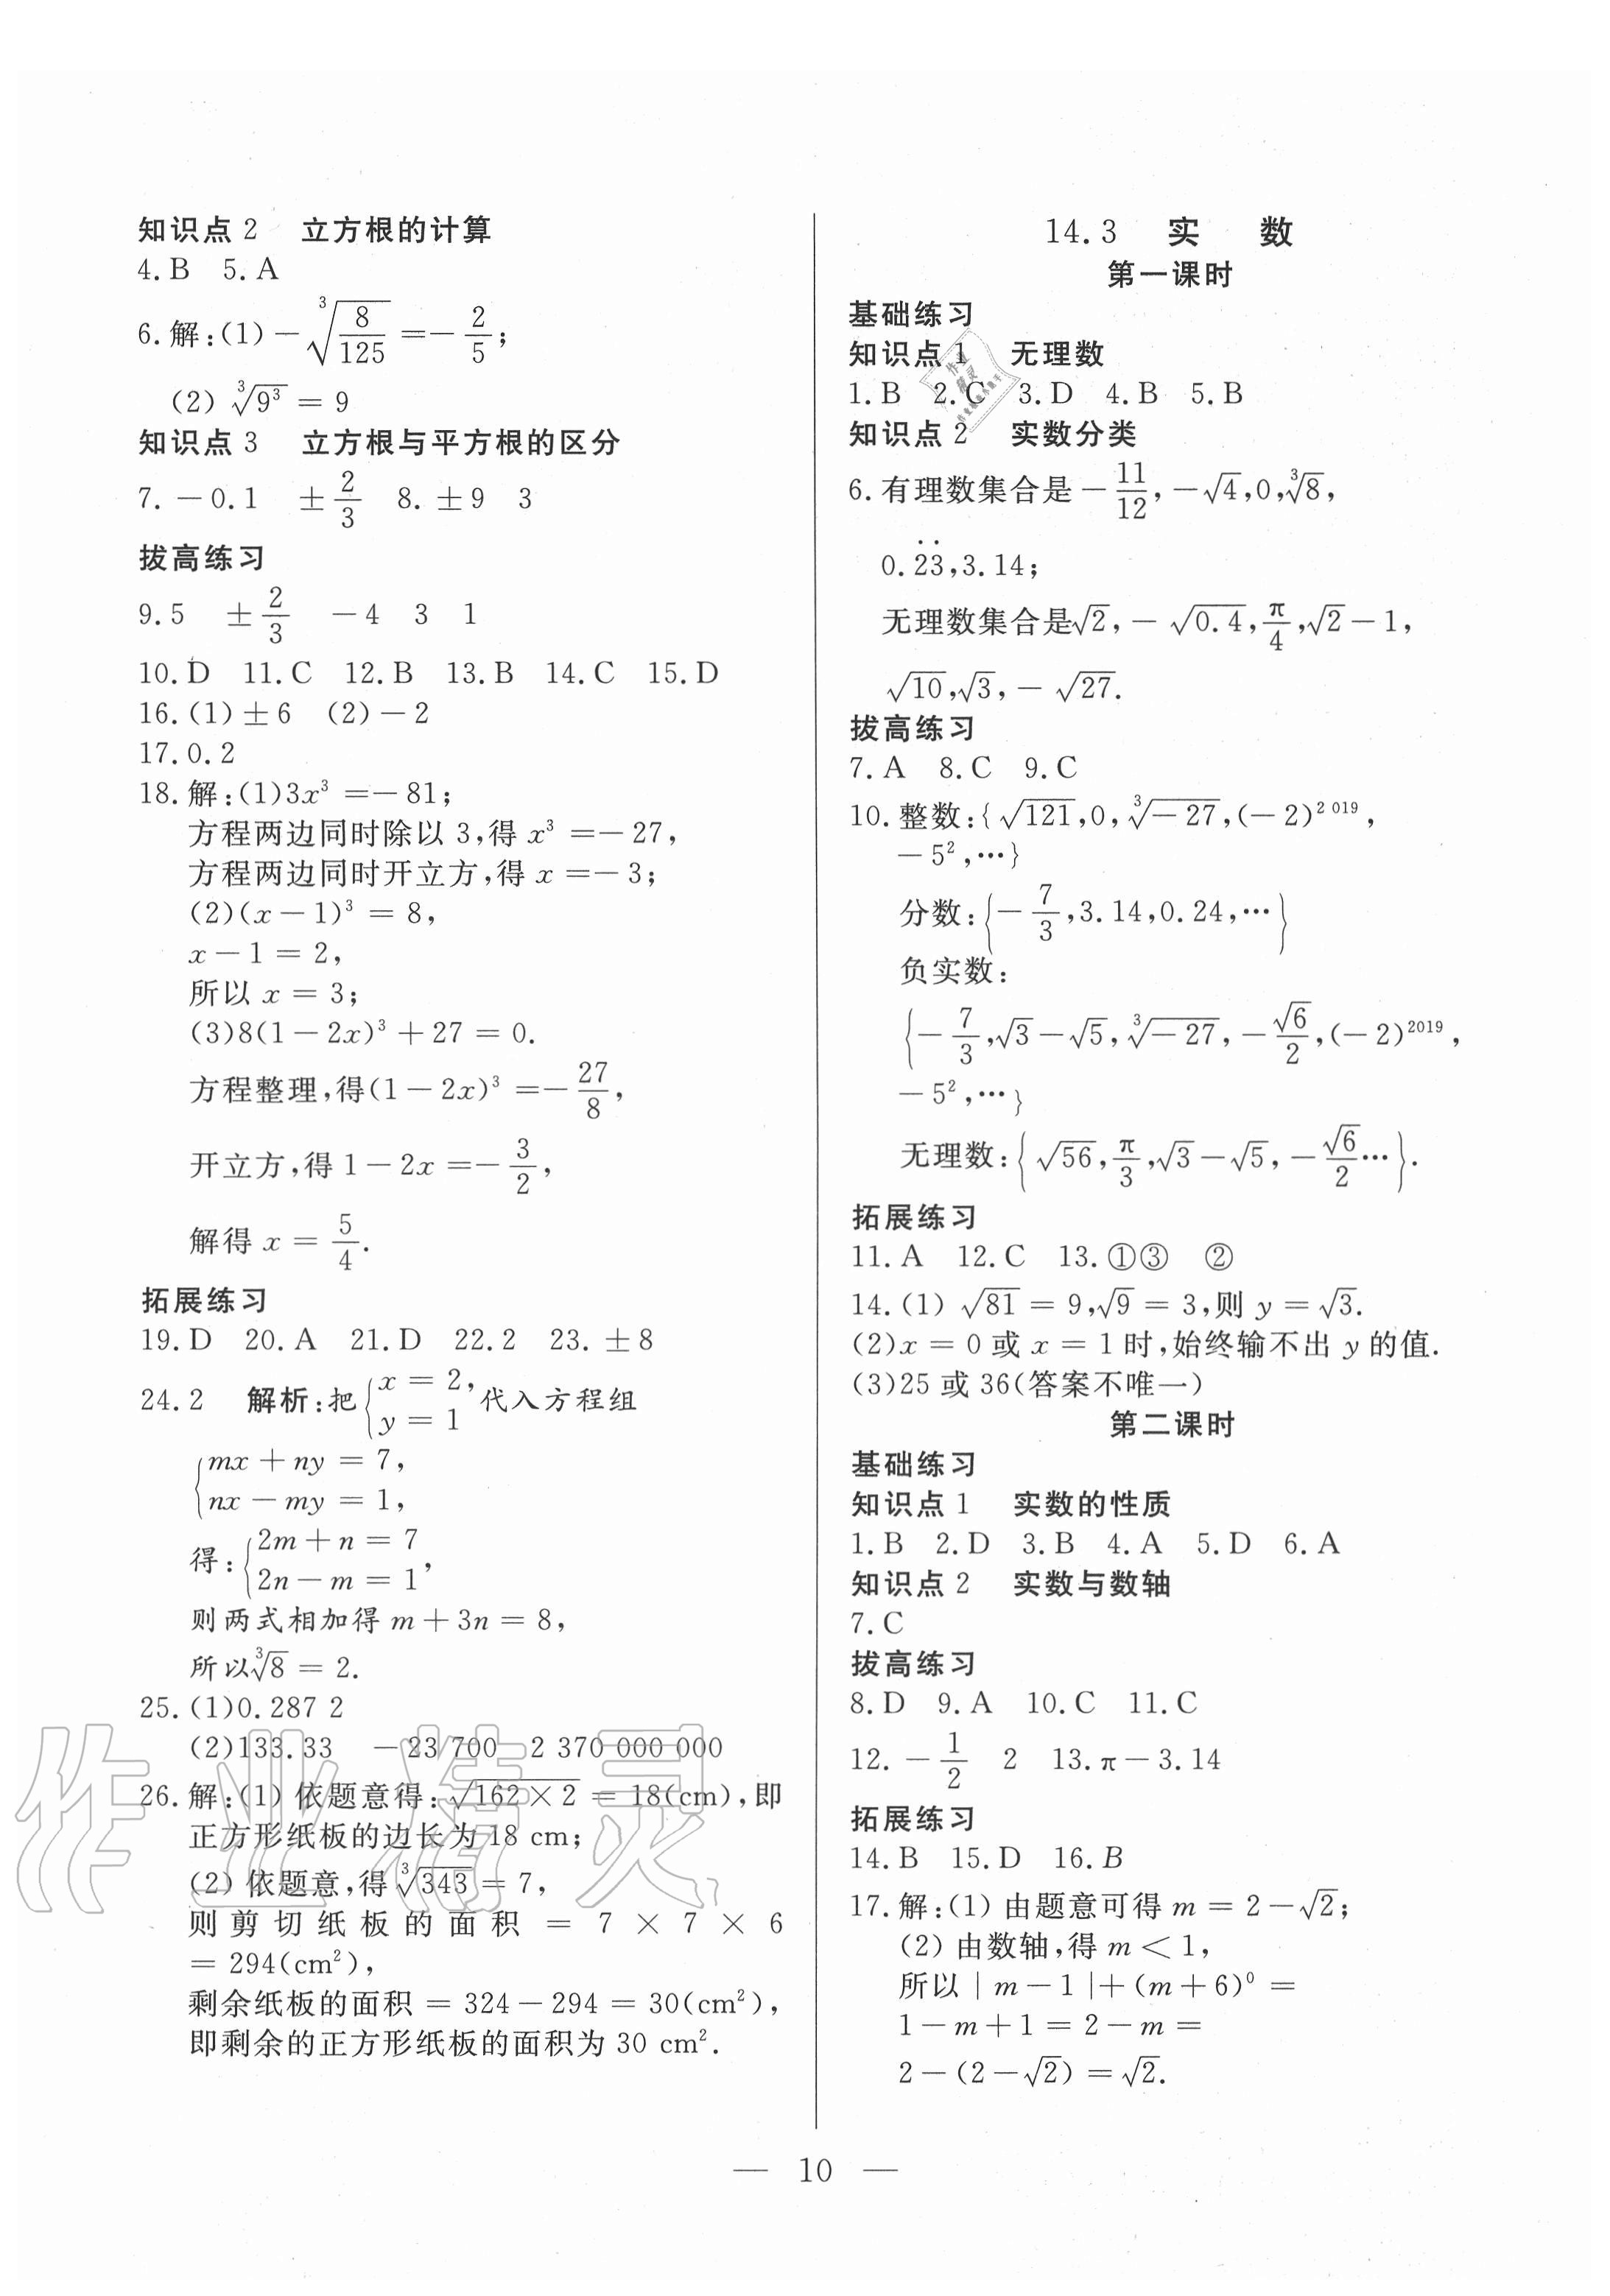 知识点 2 立方根的计算
4. B 5. A
6. 解:(1) −∛(8/125) = −2/5;
(2) ∛(9³) = 9
知识点 3 立方根与平方根的区分
7. −0.1 ±2/3 8. ±9 3
拔高练习
9. 5 ±2/3 −4 3 1
10. D 11. C 12. B 13. B 14. C 15. D
16. (1) ±6 (2) −2
17. 0.2
18. 解:(1)3x³ = −81;
方程两边同时除以 3,得 x³ = −27,
方程两边同时开立方,得 x = −3;
(2)(x−1)³ = 8,
x−1 = 2,
所以 x = 3;
(3)8(1−2x)³ + 27 = 0.
方程整理,得(1−2x)³ = −27/8,
开立方,得 1−2x = −3/2,
解得 x = 5/4.
拓展练习
19. D 20. A 21. D 22. 2 23. ±8
24. 2 解析:把{x = 2, y = 1 代入方程组
{mx + ny = 7,
nx − my = 1,
得:{2m + n = 7
2n − m = 1,
则两式相加得 m + 3n = 8,
所以∛8 = 2.
25. (1)0.287 2
(2)133.33 −23 700 2 370 000 000
26. 解:(1) 依题意得:√(162×2) = 18(cm),即
正方形纸板的边长为 18 cm;
(2) 依题意,得∛343 = 7,
则剪切纸板的面积 = 7 × 7 × 6
= 294(cm²),
剩余纸板的面积 = 324 − 294 = 30(cm²),
即剩余的正方形纸板的面积为 30 cm².
14.3 实 数
第一课时
基础练习
知识点 1 无理数
1. B 2. C 3. D 4. B 5. B
知识点 2 实数分类
6. 有理数集合是 −11/12, −√4, 0, ∛8,
0.2̇3̇, 3.14;
无理数集合是√2, −√0.4, π/4, √2−1,
√10, √3, −√27.
拔高练习
7. A 8. C 9. C
10. 整数:{√121, 0, ∛−27, (−2)² ⁰¹⁹,
−5², …}
分数:{−7/3, 3.14, 0.24, …}
负实数:
{−7/3, √3−√5, ∛−27, −√6/2, (−2)²⁰¹⁹,
−5², …}
无理数:{√56, π/3, √3−√5, −√6/2 …}.
拓展练习
11. A 12. C 13. ①③ ②
14. (1) √81 = 9, √9 = 3, 则 y = √3.
(2)x = 0 或 x = 1 时,始终输不出 y 的值.
(3)25 或 36(答案不唯一)
第二课时
基础练习
知识点 1 实数的性质
1. B 2. D 3. B 4. A 5. D 6. A
知识点 2 实数与数轴
7. C
拔高练习
8. D 9. A 10. C 11. C
12. −1/2 2 13. π−3.14
拓展练习
14. B 15. D 16. B
17. 解:(1) 由题意可得 m = 2−√2;
(2) 由数轴,得 m < 1,
所以 | m−1 | + (m+6)⁰ =
1−m+1 = 2−m =
2−(2−√2) = √2.
— 10 —
作业精灵